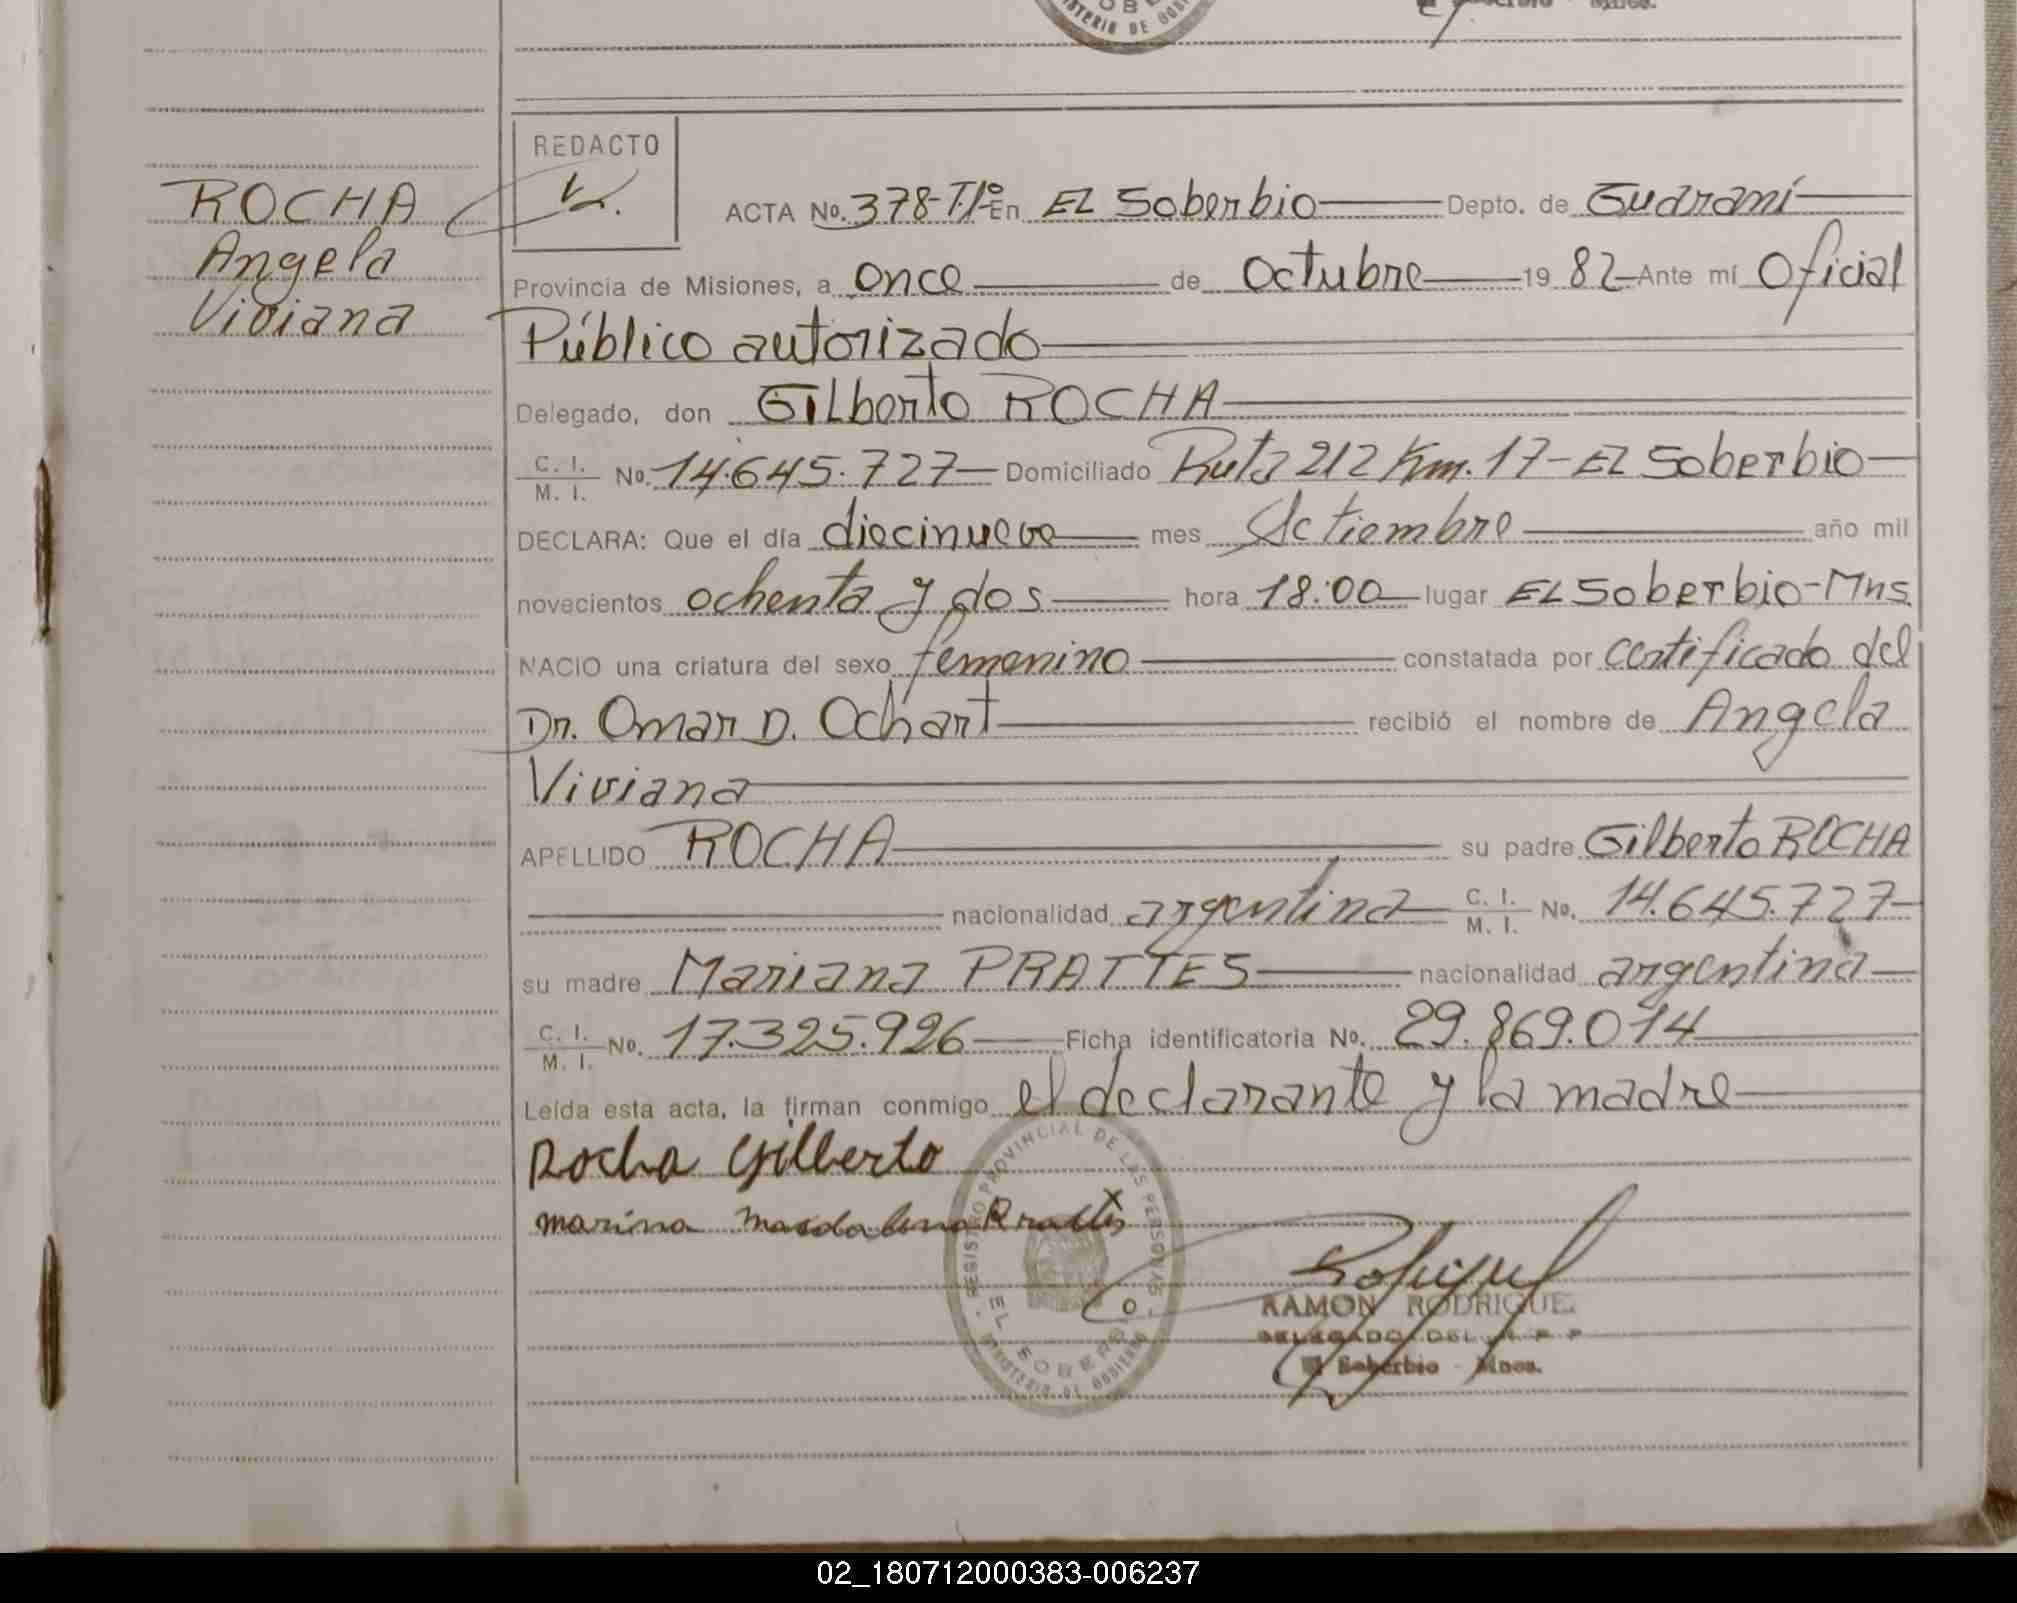 ROCHA
Angela
Viviana
REDACTO
ACTA No. 378-Tº1º En EL Soberbio Depto. de Guaraní
Provincia de Misiones, a once de Octubre 19 82 Ante mí Oficial
Público autorizado
Delegado, don Gilberto ROCHA
C. I.
M. I. No. 14.645.727 Domiciliado Ruta 212 Km. 17- EL Soberbio
DECLARA: Que el día diecinueve mes Setiembre año mil
novecientos ochenta y dos hora 18:00 lugar EL Soberbio-Mns.
NACIO una criatura del sexo femenino constatada por certificado del
Dr. Omar D. Ochart recibió el nombre de Angela
Viviana
APELLIDO ROCHA su padre Gilberto ROCHA
nacionalidad argentina C. I. M. I. No. 14.645.727
su madre Mariana PRATTES nacionalidad argentina
C. I.
M. I. No. 17.325.926 Ficha identificatoria No. 29.869.014
Leída esta acta, la firman conmigo el declarante y la madre
Rocha Gilberto
REGISTRO PROVINCIAL DE LAS PERSONAS
EL SOBERBIO
MINISTERIO DE GOBIERNO
RAMON RODRIGUEZ
DELEGADO DEL R. P. P.
El Soberbio - Mnes.
02_180712000383-006237